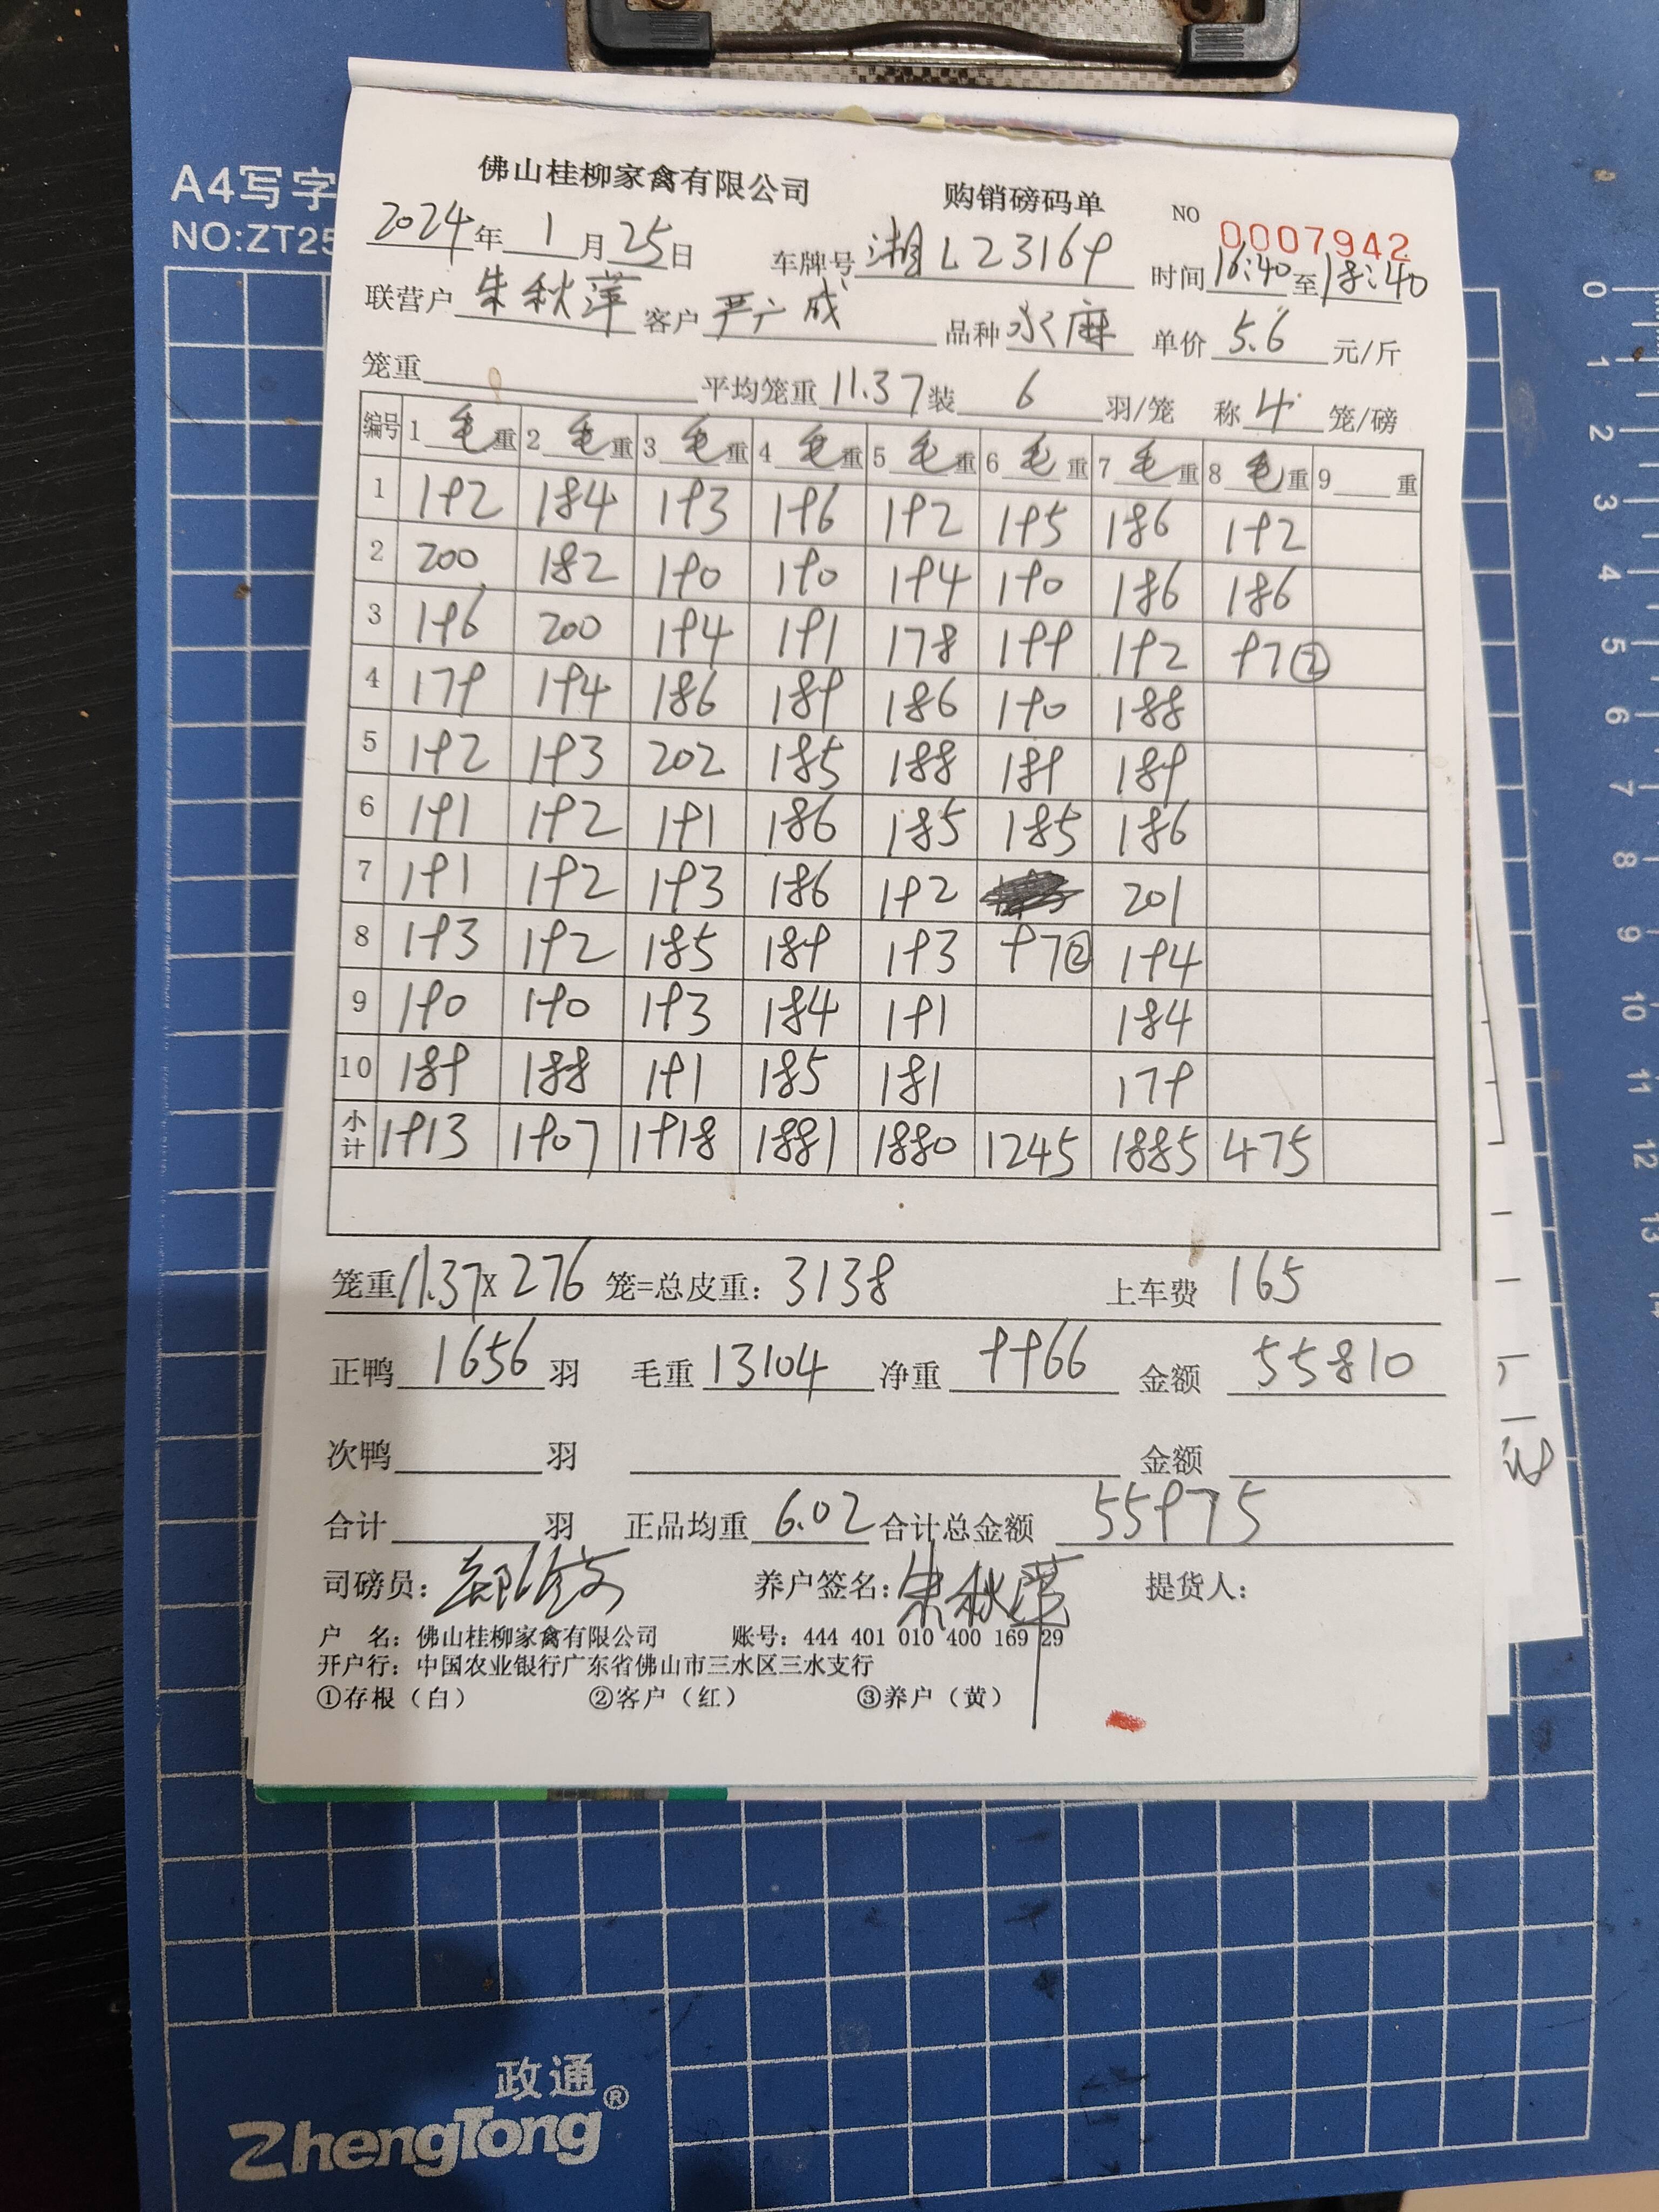 A4写字
NO:ZT25
佛山桂柳家禽有限公司 购销磅码单 NO 0007942
2024年1月25日 车牌号 湘L23169 时间16:40至18:40
联营户 朱秋萍 客户 严广成 品种 水麻 单价 5.6 元/斤
笼重 平均笼重 11.37 装 6 羽/笼 称 4 笼/磅
编号 1 毛重 2 毛重 3 毛重 4 毛重 5 毛重 6 毛重 7 毛重 8 毛重 9 重
1 192 184 193 196 192 195 186 192
2 200 182 190 190 194 190 186 186
3 196 200 194 191 178 199 192 97②
4 179 194 186 189 186 190 188
5 192 193 202 185 188 189 189
6 191 192 191 186 185 185 186
7 191 192 193 186 192 201
8 193 192 185 189 193 97② 194
9 190 190 193 184 191 184
10 189 188 191 185 181 179
小计 1913 1907 1918 1881 1880 1245 1885 475
笼重11.37X 276 笼=总皮重: 3138 上车费 165
正鸭 1656 羽 毛重 13104 净重 9966 金额 55810
次鸭 羽 金额
合计 羽 正品均重 6.02 合计总金额 55975
司磅员: 养户签名: 朱秋萍 提货人:
户 名: 佛山桂柳家禽有限公司 账号: 444 401 010 400 169 29
开户行: 中国农业银行广东省佛山市三水区三水支行
①存根(白) ②客户(红) ③养户(黄)
0
1
2
3
4
5
6
7
8
9
10
11
12
13
14
政通®
ZhengTong